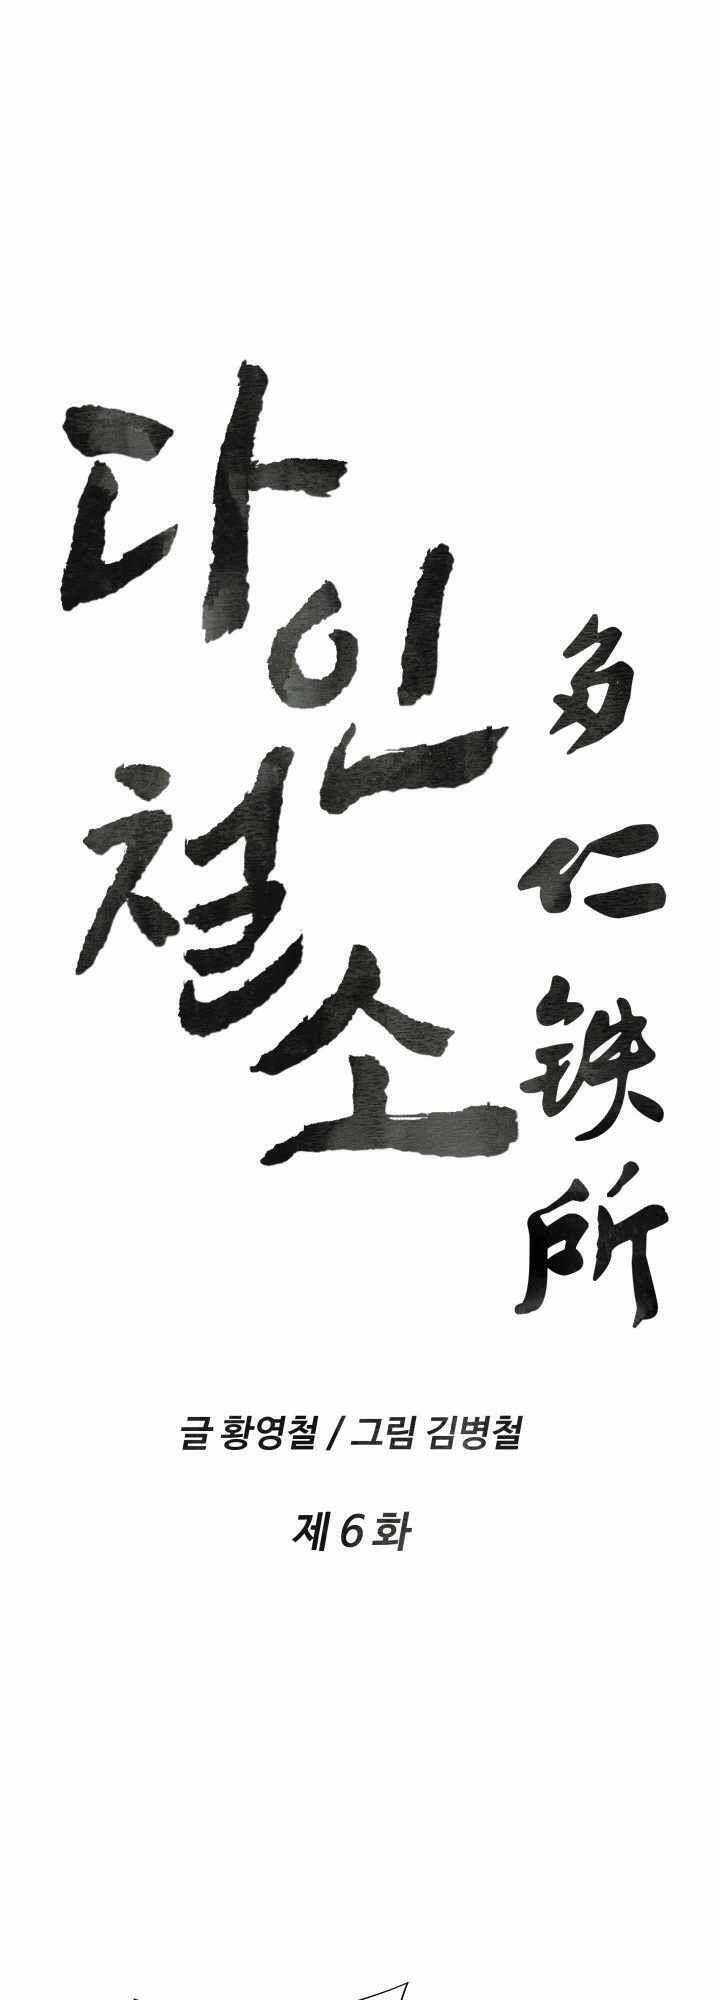 다인
철소
多仁铁所
글 황영철 / 그림 김병철
제 6 화